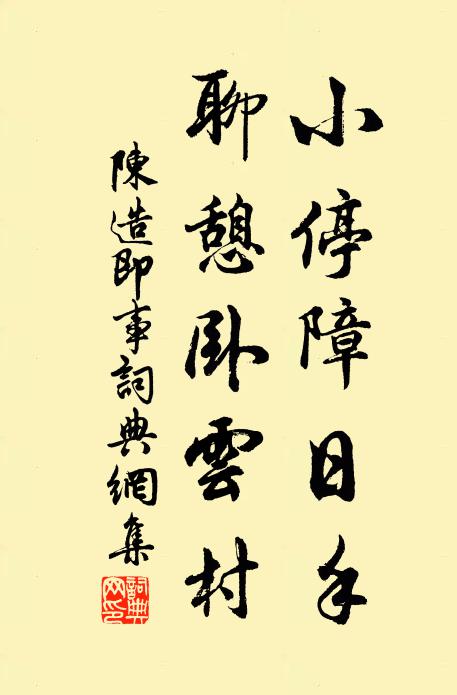 小停障日手
聊憩臥雲村
陳造即事詞典網集